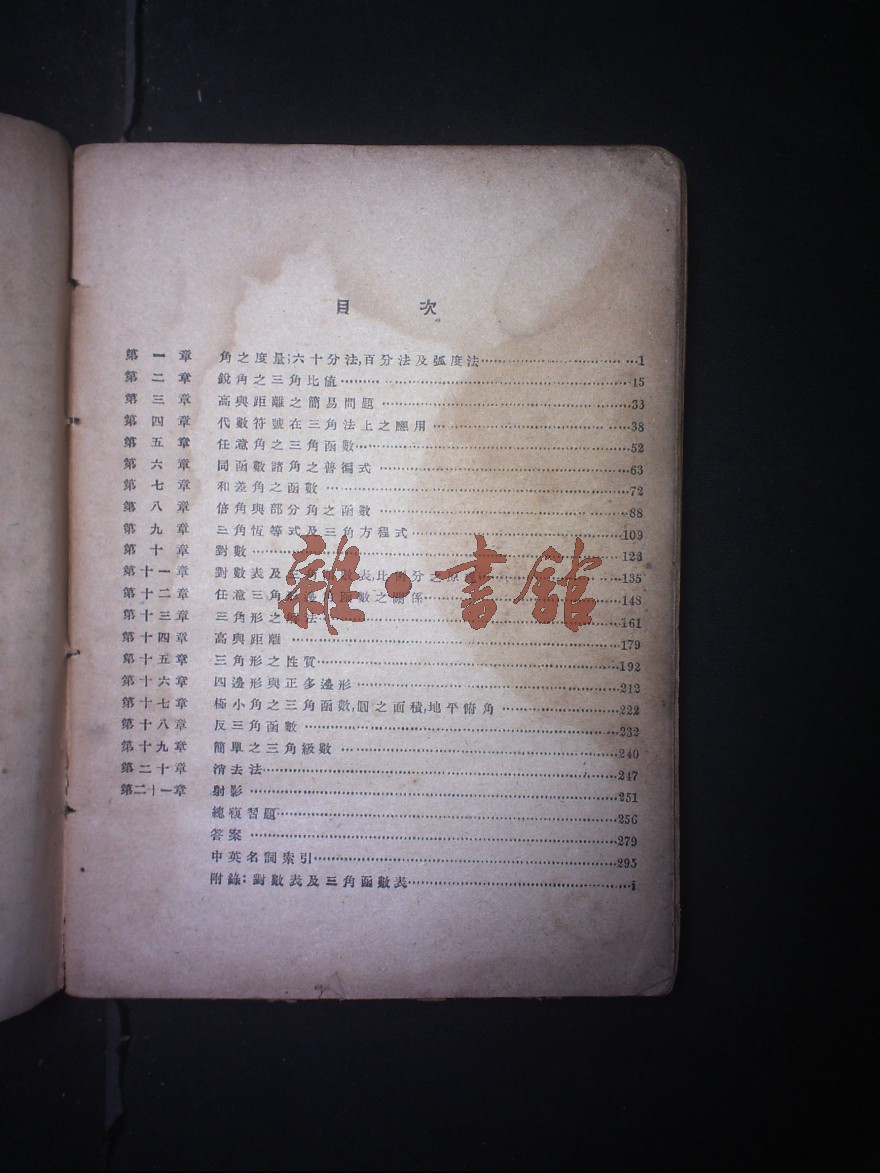 目 次
第一章 角之度量;六十分法,百分法及弧度法……1
第二章 銳角之三角比值……15
第三章 高與距離之簡易問題……33
第四章 代數符號在三角法上之應用……38
第五章 任意角之三角函數……52
第六章 同函數諸角之普徧式……63
第七章 和差角之函數……72
第八章 倍角與部分角之函數……88
第九章 三角恆等式及三角方程式……109
第十章 對數……123
第十一章 對數表及三角函數表,比例分之原……135
第十二章 任意三角形邊角函數之關係……148
第十三章 三角形之解法……161
第十四章 高與距離……179
第十五章 三角形之性質……192
第十六章 四邊形與正多邊形……212
第十七章 極小角之三角函數,圓之面積,地平俯角……222
第十八章 反三角函數……232
第十九章 簡單之三角級數……240
第二十章 消去法……247
第二十一章 射影……251
總複習題……256
答案……279
中英名詞索引……295
附錄:對數表及三角函數表……i
雜·書館